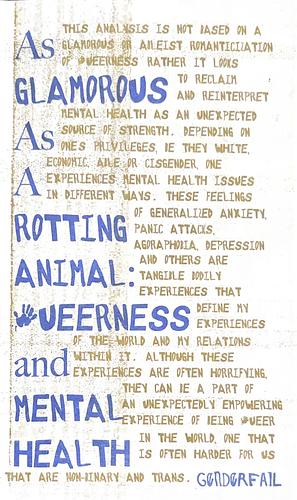 As
GLAMOROUS
As
A
ROTTING
ANIMAL:
QUEERNESS
and
MENTAL
HEALTH
THIS ANALYSIS IS NOT BASED ON A
GLAMOROUS OR ABLEIST ROMANTICIZATION
OF QUEERNESS RATHER IT LOOKS
TO RECLAIM
AND REINTERPRET
MENTAL HEALTH AS AN UNEXPECTED
SOURCE OF STRENGTH. DEPENDING ON
ONE'S PRIVILEGES, BE THEY WHITE,
ECONOMIC, ABLE OR CISGENDER, ONE
EXPERIENCES MENTAL HEALTH ISSUES
IN DIFFERENT WAYS. THESE FEELINGS
OF GENERALIZED ANXIETY,
PANIC ATTACKS,
AGORAPHOBIA, DEPRESSION
AND OTHERS ARE
TANGIBLE BODILY
EXPERIENCES THAT
DEFINE MY
EXPERIENCES
OF THE WORLD AND MY RELATIONS
WITHIN IT. ALTHOUGH THESE
EXPERIENCES ARE OFTEN HORRIFYING,
THEY CAN BE A PART OF
AN UNEXPECTEDLY EMPOWERING
EXPERIENCE OF BEING QUEER
IN THE WORLD, ONE THAT
IS OFTEN HARDER FOR US
THAT ARE NON-BINARY AND TRANS. GENDERFAIL